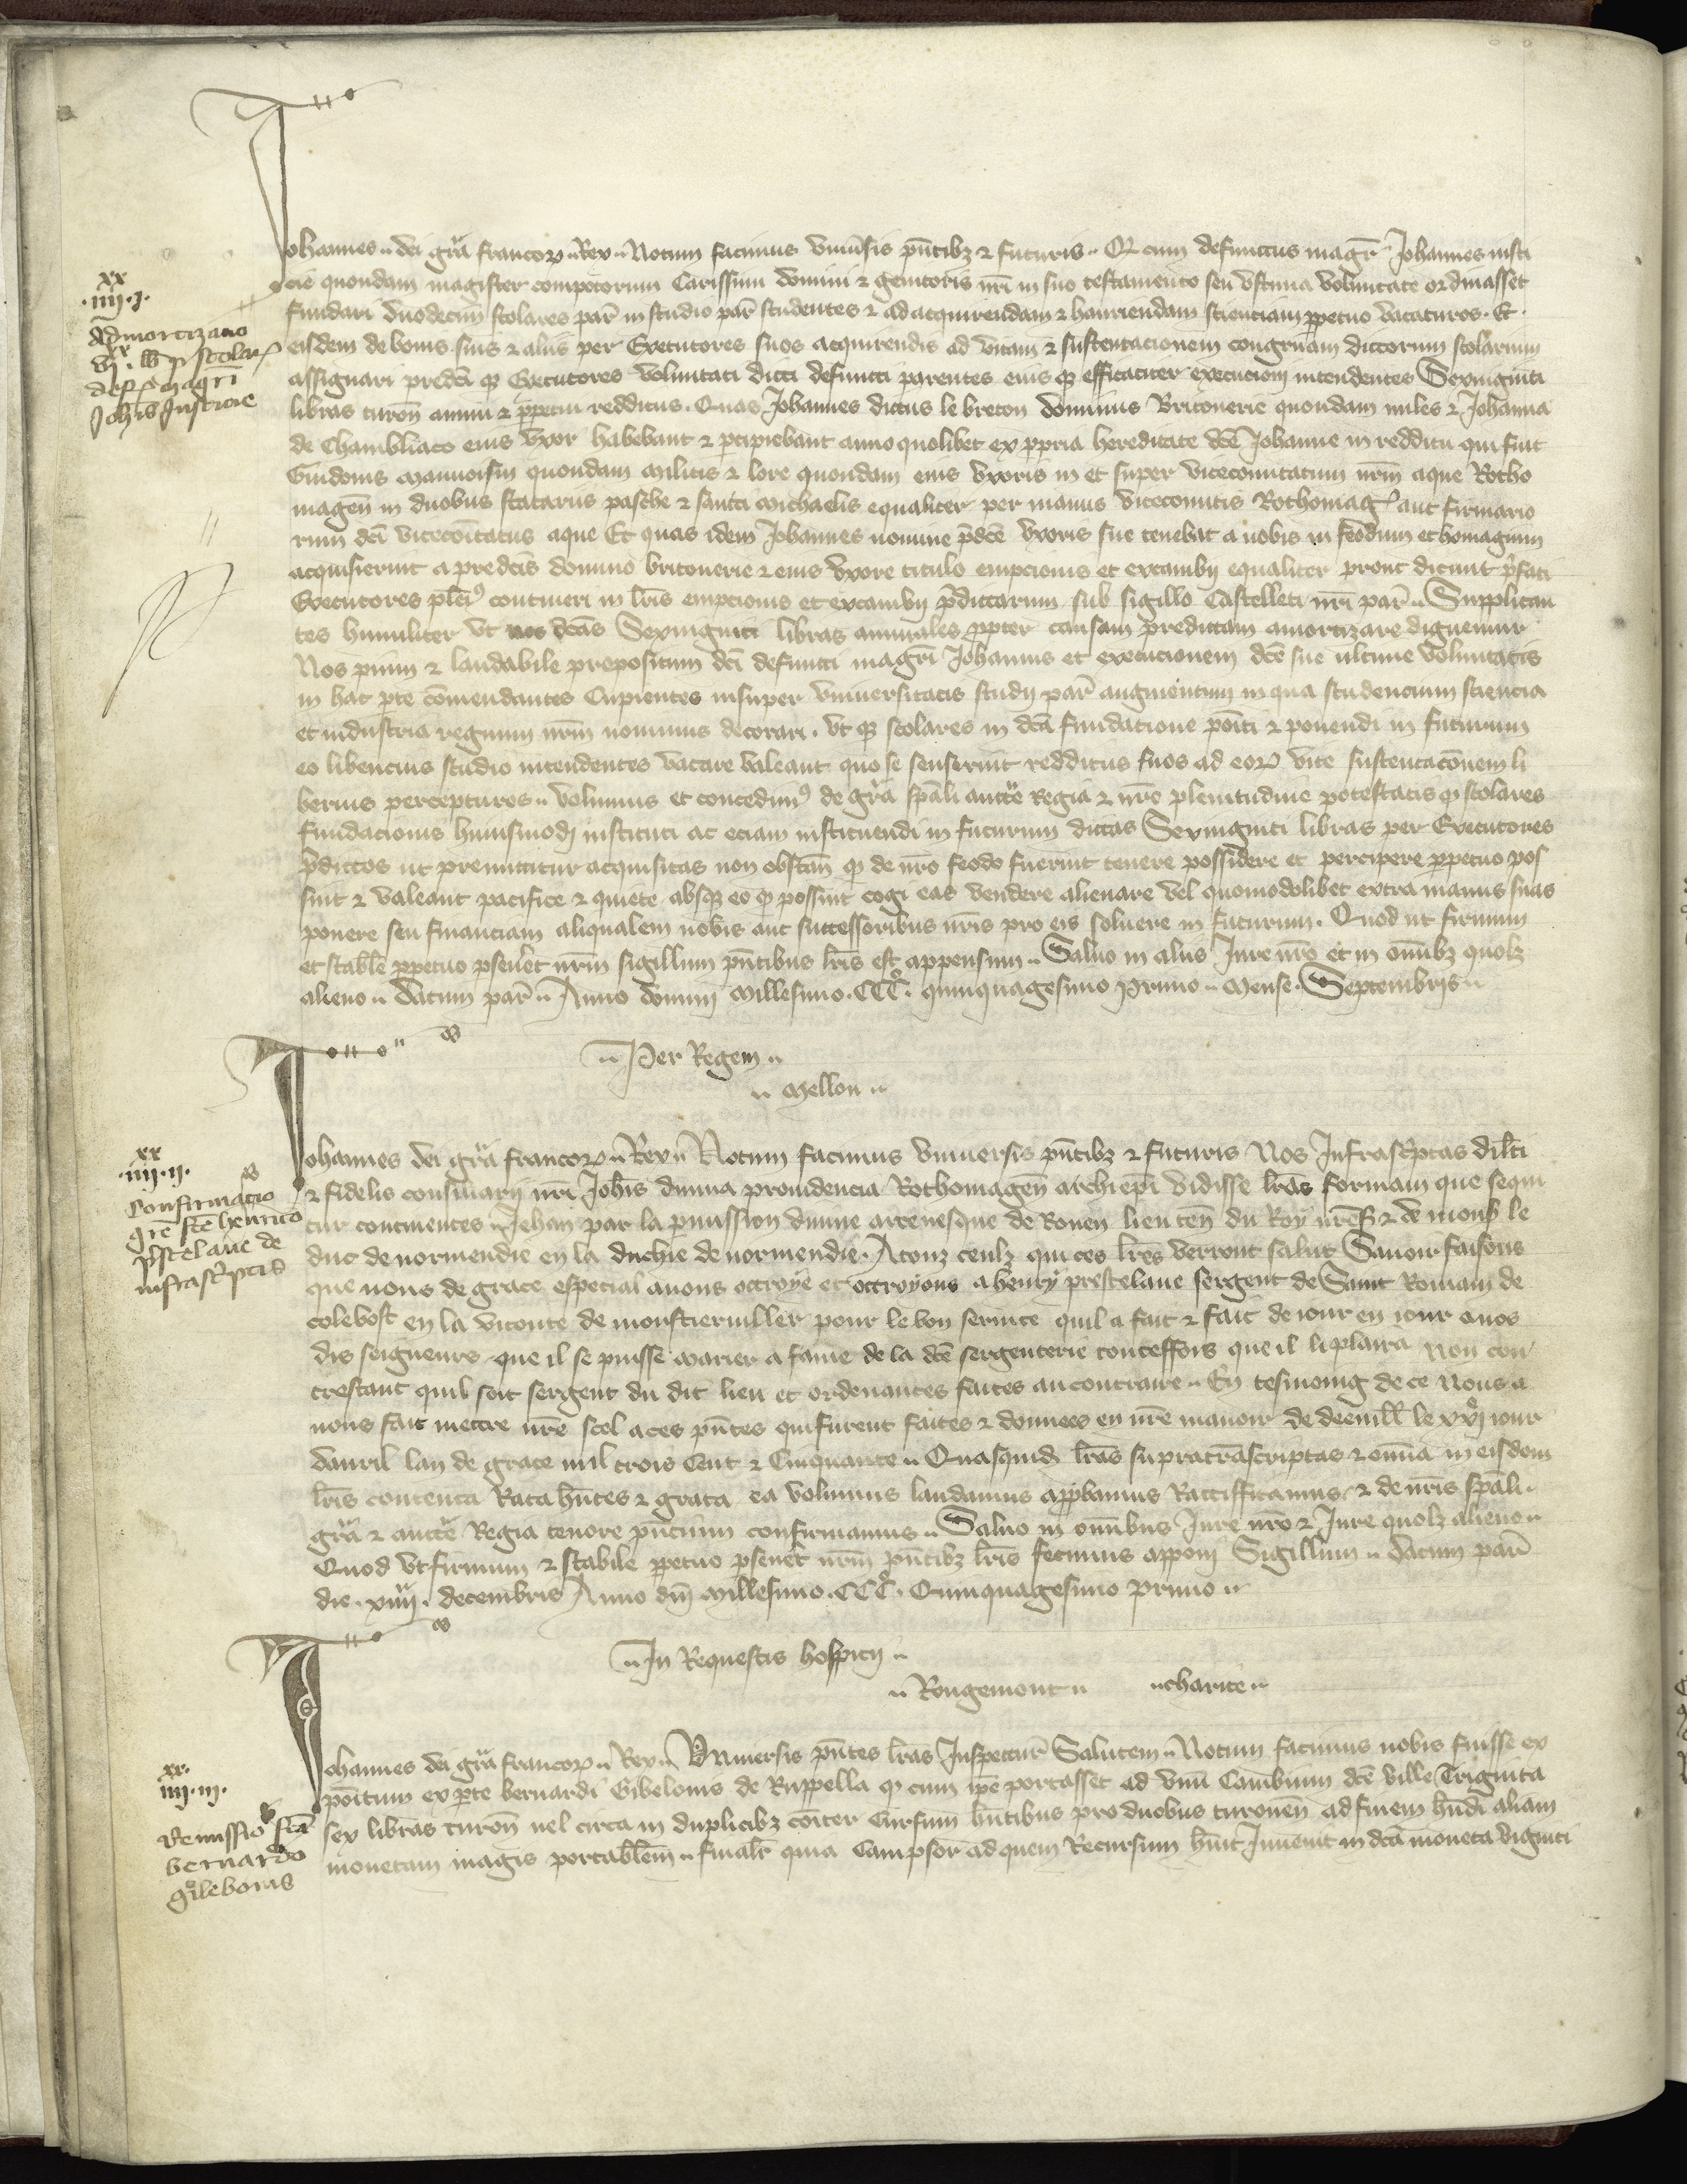 Johannes dei gr̃a francoꝝ Rex Notum facimus Vniu̾sis pñtibꝫ ⁊ futuris Qꝫ cum defunctus magr̃ Johannes iusti
cie quondam magister compotorum Carissimi domini ⁊ genitoris nr̃i in suo testamento seu vltima voluntate ordinasset
fundari duodecim scolares par̃ in studio par̃ studentes ⁊ ad acquirendam ⁊ hauriendam scienciam ꝑpetuo vacaturos. Et
eisdem de bonis suis ⁊ aliis per Executores suos acquirendis ad vitam ⁊ sustentacionem congruam dictorum scolarium
assignari predc̃i qꝫ Executores voluntati dicti defuncti parentes eius qꝫ efficaciter execucioni intendentes Sexviginti
libras turoñ annui ⁊ ꝑpetui redditus. Quas Johannes dictus le breton dominus Britonerie quondam miles ⁊ Johanna
de Chambliaco eius vxor habebant ⁊ ꝑcipiebant anno quolibet ex ꝓpria hereditate dc̃e Johanne in redditu qui fuit
Guidonis Mauuoisin quondam militis ⁊ lore quondam eius vxoris in et super vicecomitatum nr̃m aque Rotho
mageñ in duobus statariis pasche ⁊ sancti Michaelis equaliter per manus vicecomitis Rothomag̃ aut firmario
rum dc̃i vicecõitatus aque Et quas idem Johannes nomine p̃dc̃e vxoris sue tenebat a nobis in feodum et homagium
acquisierint a predc̃is domino britonerie ⁊ eius vxore titulo empcionis et excambij equaliter prout dicunt p̃fati
Executores contineri in lr̃is empcionis et excambij p̃dictarum sub sigillo Castelleti nr̃i par̃ Supplican
tes humiliter vt nos dc̃as Sexviginti libras annuales ꝓpter causam predictam amortizare dignemur
Nos pium ⁊ laudabile propositum dc̃i defuncti magr̃i Johannis et execucionem dc̃e sue ultime voluntatis
in hac ꝑte cõmendantes Cupientes insuper vniuersitatis studij par̃ augmentum in qua studencium sciencia
et industria regnum nr̃m nouimus decorari. vt qꝫ scolares in dc̃a fundatione põiti ⁊ ponendi in futurum
eo libencius studio intendentes vacare valeant quo se senserint redditus suos ad eoꝝ vite sustentacõnem li
berius percepturos volumus et concedimꝰ de gr̃a sp̃ali aucte Regia ⁊ nr̃e plenitudine potestatis qꝫ scolares
fundacionis huiusmodi instituti ac eciam instituendi in futurum dictas Sexviginti libras per Executores
p̃dictos ut premittitur acquisitas non obstañ qꝫ de nr̃o feodo fuerint tenere possidere et percipere ꝑpetuo pos
sint ⁊ valeant pacifice ⁊ quiete absqꝫ eo qꝫ possint cogi eas vendere alienare vel quomodolibet extra manus suas
ponere seu financiam aliqualem nobis aut successoribus nr̃is pro eis soluere in futurum. Quod ut firmum
et stabile ꝑpetuo ꝑseueret nr̃m sigillum pñtibus lr̃is est appensum Saluo in aliis Jure nr̃o et in oñibꝫ quolꝫ
alieno Datum par̃ Anno domini Millesimo. CCCº. quinquagesimo Primo Mense Septembris
.xx
.iiij.j.
Admortizacio
vj.xx lb p scolarꝫ
defi magr̃i
Joh̃is Justicie
Per Regem
Mellou
Johannes dei gr̃a francoꝝ Rex Notum facimus Vniuersis pñtibꝫ ⁊ futuris Nos Infrasc̃ptas dilc̃i
⁊ fidelis consiliarij nr̃i Joh̃is diuina prouidencia Rothomageñ archiep̃i vidisse lr̃as formam que sequi
tur continentes Jehan par la ꝑmission diuine arceuesque de Rouen lieuteñ du Roy nr̃eS ⁊ de monsʳ le
duc de normendie en la duchie de normendie. A touz ceulz qui ces lr̃es verront salut Sauoir faisons
que nous de grace especial auons ottroye et ottroyons a henry prestelaue sergent de Saint Romain de
colebost en la viconte de monstieruiller pour le bon seruice quil a fait ⁊ fait de iour en iour a nos
dis seigneurs que il se puisse marier a fame de la dc̃e sergenterie touteffois que il li plaira non con
trestant quil soit sergent du dit lieu et ordenances faites au contraire En tesmoing de ce Nous a
uons fait mettre nr̃e scel a ces pñtes qui furent faites ⁊ donnees en nr̃e manoir de deeuill̃ le xxj iour
dauril lan de grace mil trois Cent ⁊ Cinquante Quasquid lr̃as supratrãscriptas ⁊ oñia in eisdem
lr̃is contenta Rata hñtes ⁊ grata ea volumus laudamus aꝓbamus Rattifficamus ⁊ de nr̃is sp̃ali
gr̃a ⁊ aucte Regia tenore pñcium confirmamus Saluo in oñibus Jure nr̃o ⁊ Jure quolꝫ alieno
Quod vt firmum ⁊ stabile ꝑpetuo ꝑseuet nr̃m pñtibꝫ lr̃is fecimus apponi Sigillum Datum par̃
die. xiiij. decembris Anno dñi Millesimo. CCCº. Quinquagesimo primo
.xx
.iiij.ij.
Confirmacio
gr̃e fc̃e henrico
p̃stelaue de
infrasc̃ptis
In Requestis hospicij
Rougemont charite
Johannes dei gr̃a francoꝝ Rex Vniuersis pñtes lr̃as Inspectur̃ Salutem Notum facimus nobis fuisse ex
põitum ex ꝑte bernardi Gibelonis de Ruppella qꝫ cum ip̃e portasset ad vnũ Cambium dc̃e ville Triginta
sex libras turoñ uel circa in duplicibꝫ cõiter Cursum hñtibus pro duobus turoneñ ad finem hñdi aliam
monetam magis portabilem finalr̃ quia Campsor ad quem Recursum hũit Inuenit in dc̃a moneta viginti
.xx.
.iiij.iij.
Remissio fc̃a
bernardo